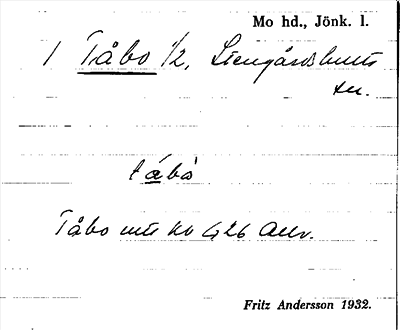 Mo hd., Jönk. l.
1 Tåbo 1/2, Stengårdshults
sn.
tåbò
Tåbo mtl kb G26 Allv.
Fritz Andersson 1932.